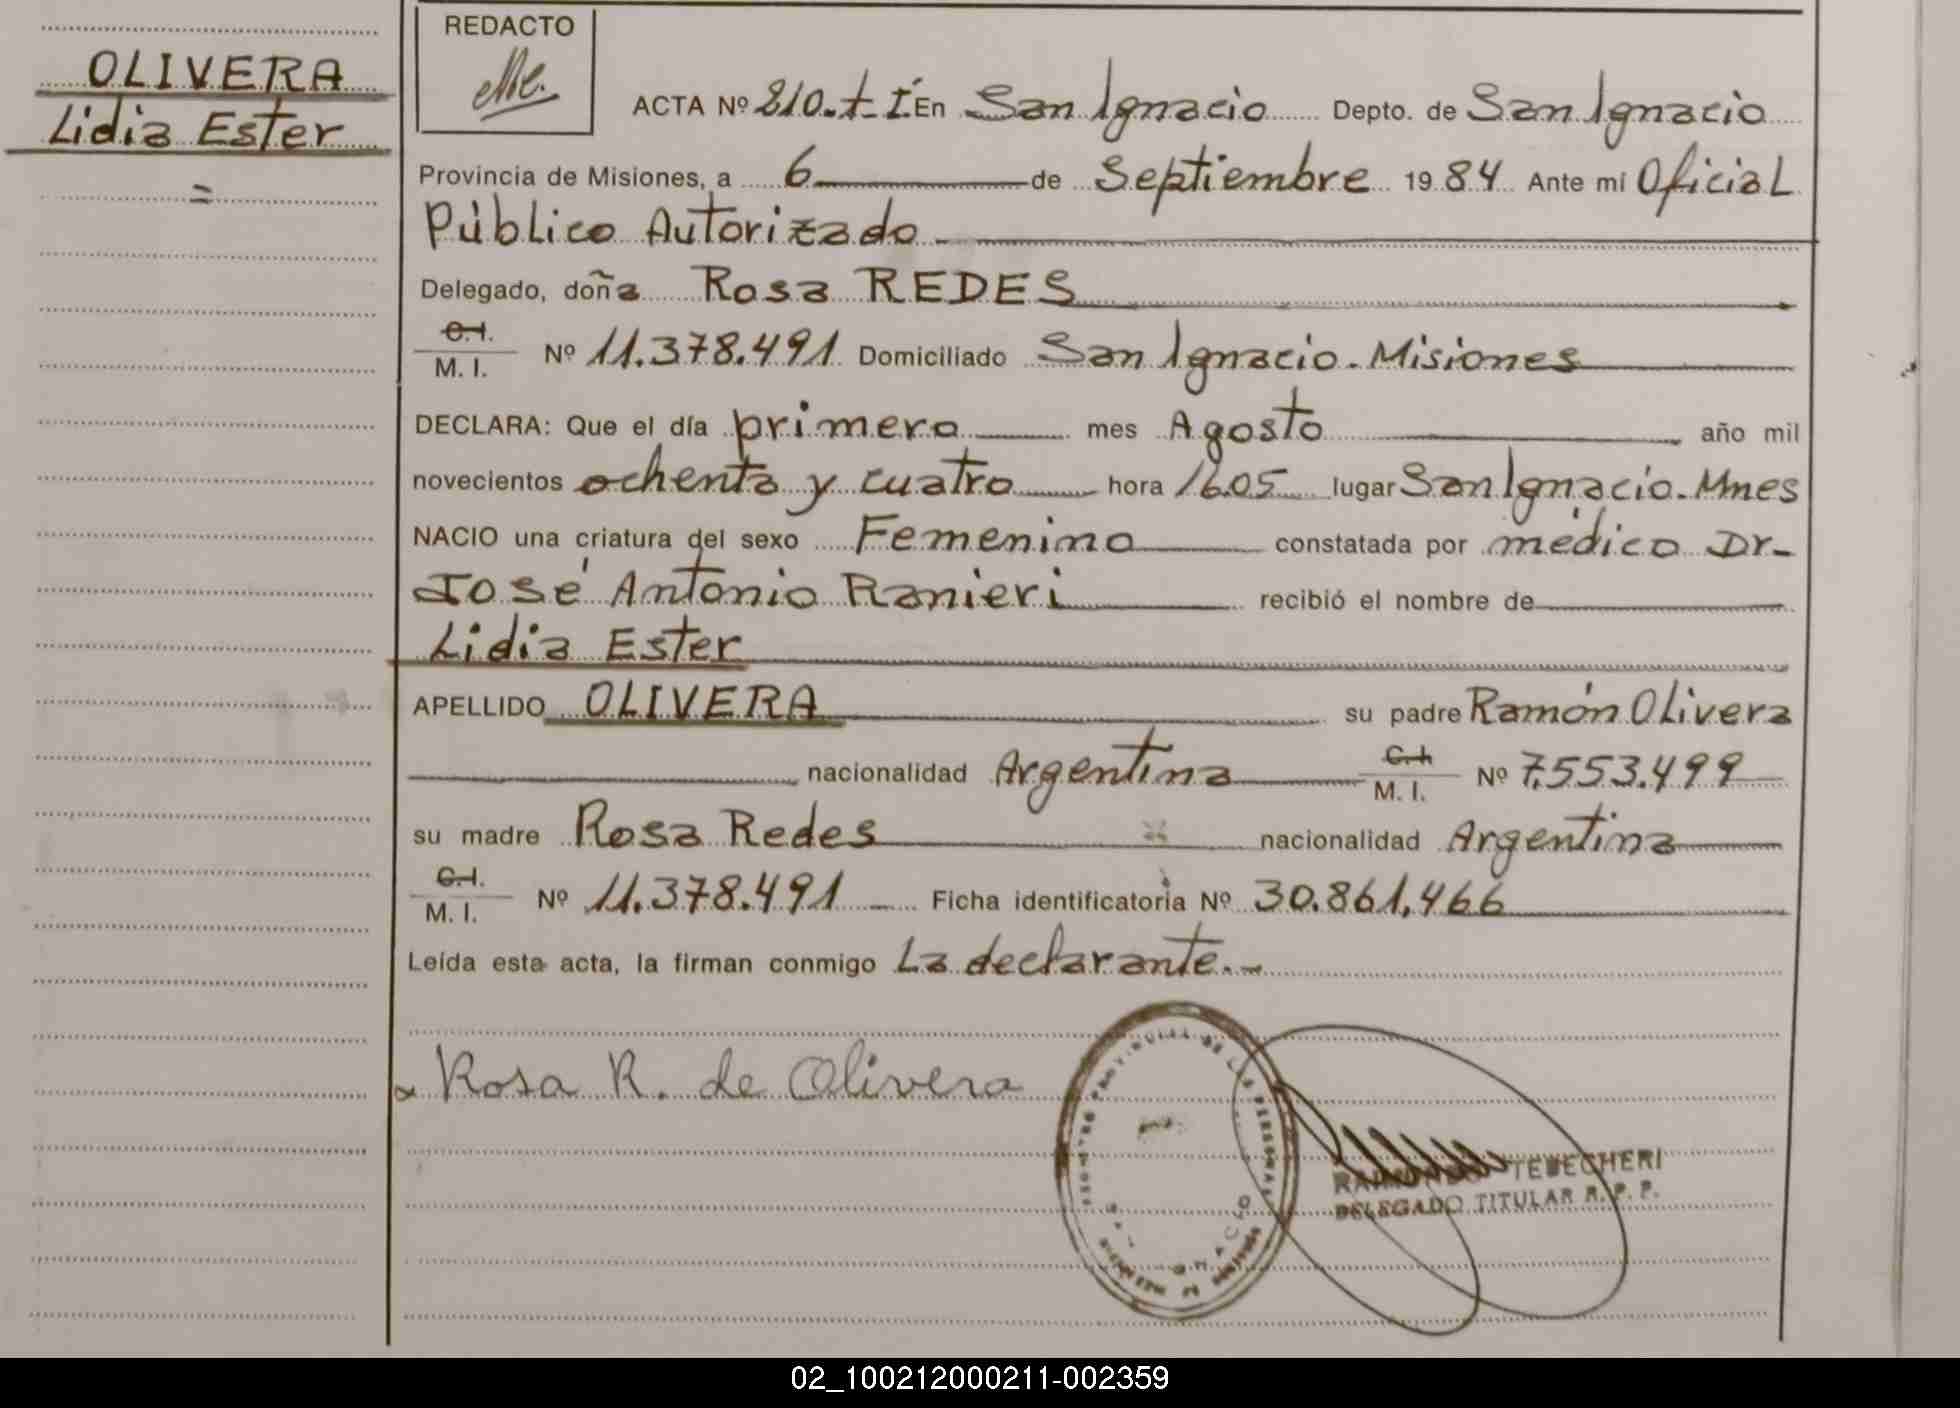 OLIVERA
Lidia Ester
=
REDACTO
ACTA Nº 210.t-I En San Ignacio Depto. de San Ignacio
Provincia de Misiones, a 6 de Septiembre 1984 Ante mi Oficial
Público Autorizado
Delegado, doña Rosa REDES
C.I.
M. I. Nº 11.378.491 Domiciliado San Ignacio. Misiones
DECLARA: Que el día primero mes Agosto año mil
novecientos ochenta y cuatro hora 16.05 lugar San Ignacio. Mnes
NACIO una criatura del sexo Femenino constatada por médico Dr-
José Antonio Ranieri recibió el nombre de
Lidia Ester
APELLIDO OLIVERA su padre Ramón Olivera
nacionalidad Argentina C.I. M. I. Nº 7.553.499
su madre Rosa Redes nacionalidad Argentina
C.I.
M. I. Nº 11.378.491 Ficha identificatoria Nº 30.861.466
Leída esta acta, la firman conmigo La declarante.-
Rosa R. de Olivera
REGISTRO PROVINCIAL DE LAS PERSONAS
RAIMUNDO TEBECHERI
DELEGADO TITULAR R. P. P.
02_100212000211-002359